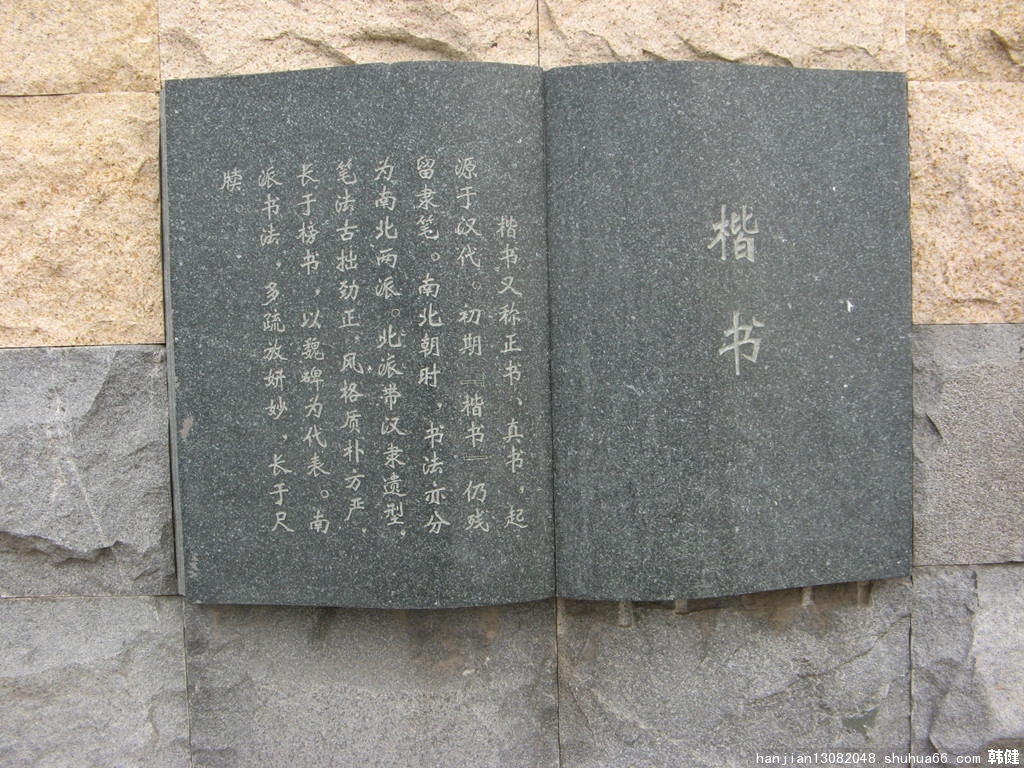 楷书
楷书又称正书、真书，起
源于汉代。初期『楷书』仍残
留隶笔。南北朝时，书法亦分
为南北两派。北派带汉隶遗型，
笔法古拙劲正，风格质朴方严，
长于榜书，以魏碑为代表。南
派书法，多疏放妍妙，长于尺
牍。
hanjian13082048 shuhua66.com 韩健